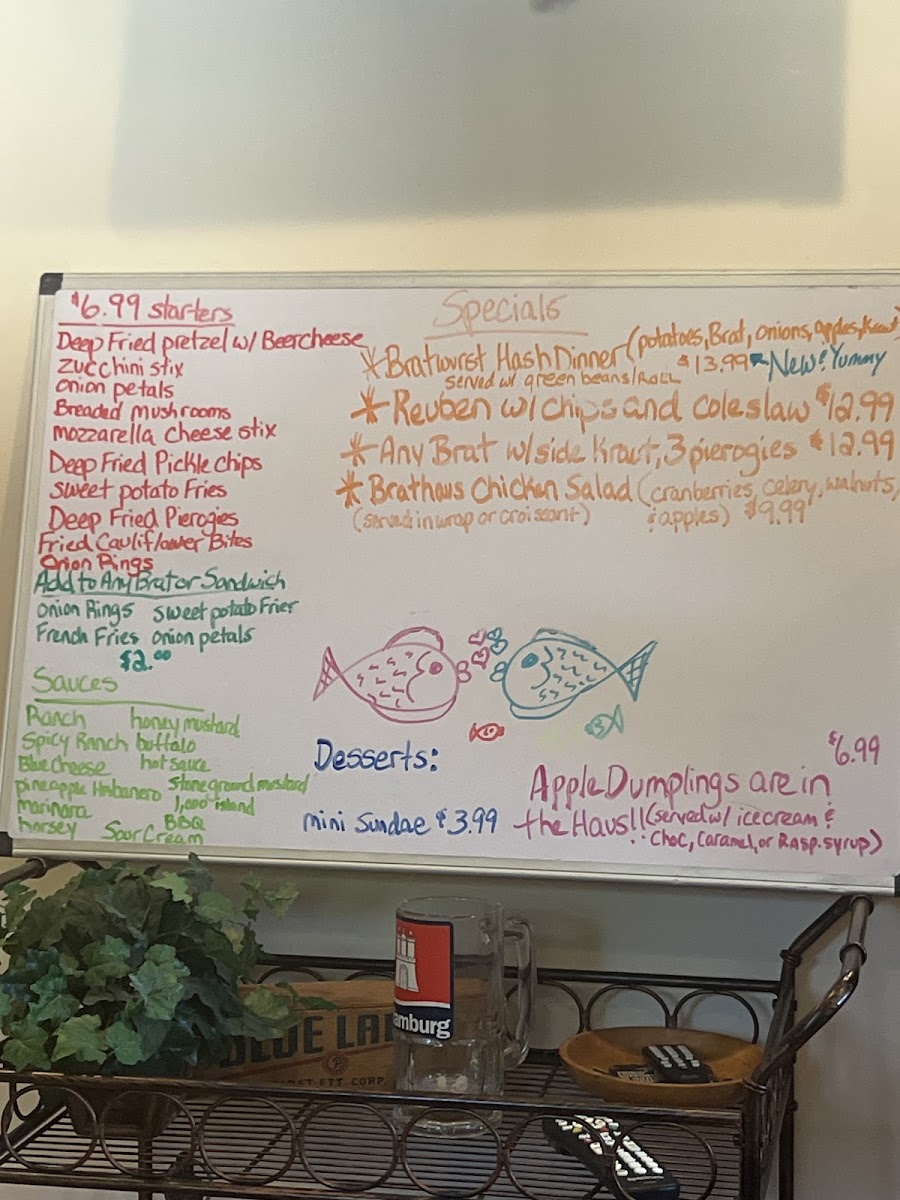 $6.99 starters
Deep Fried pretzel w/ Beercheese
zucchini stix
onion petals
Breaded mushrooms
mozzarella cheese stix
Deep Fried Pickle chips
sweet potato Fries
Deep Fried Pierogies
Fried Cauliflower Bites
Onion Rings
Add to Any Brat or Sandwich
Onion Rings sweet potato Fries
French Fries onion petals
$2.00
Sauces
Ranch honey mustard
Spicy Ranch buffalo
Blue cheese hot sauce
pineapple Habanero Stoneground mustard
marinara 1,000 island
horsey Sour Cream BBQ
Specials
*Bratwurst Hash Dinner (potatoes, Brat, onions, apples, Kraut)
served w/ green beans/ROLL $13.99 New! Yummy
*Reuben w/ chips and coleslaw $12.99
*Any Brat w/ side Kraut, 3 pierogies $12.99
*Brathaus Chicken Salad (cranberries, celery, walnuts,
(served in wrap or croissant) & apples) $9.99
Desserts:
mini Sundae $3.99
$6.99
Apple Dumplings are in
the Haus!! (Served w/ icecream &
Choc, Caramel, or Rasp. syrup)
amburg
BLUE LA
ETT CORP.